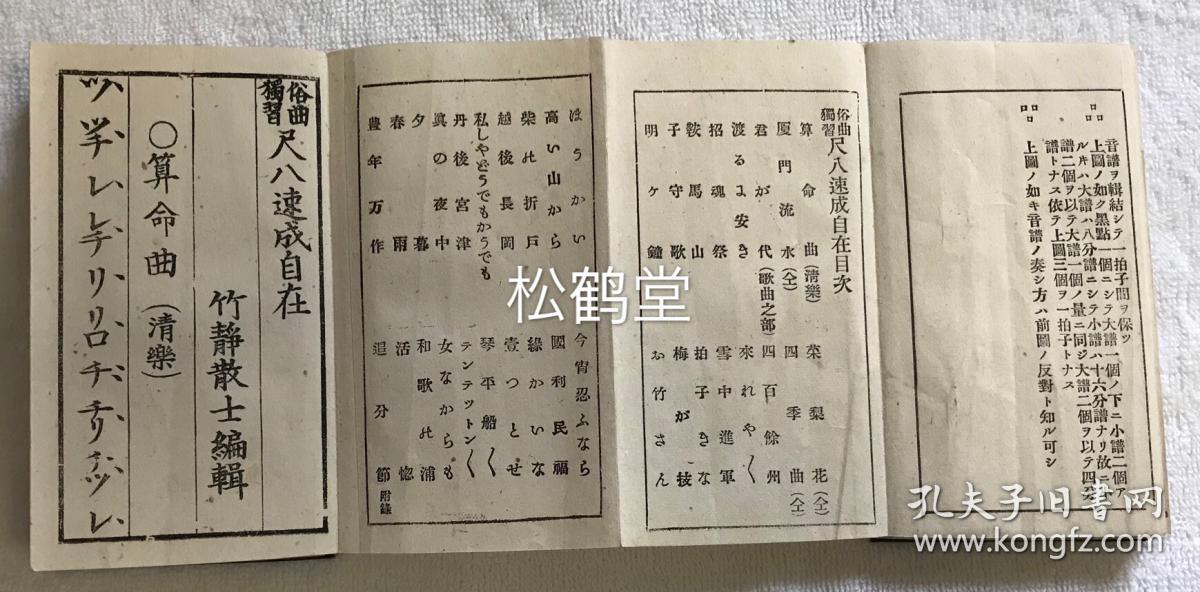 音譜ヲ輯結シテ一拍子間ヲ保ツ
上圖ノ如ク黑點一個ニシテ大譜一個ノ下ニ小譜二個ア
ルキハ大譜ハ八分譜ニシテ小譜ハ十六分譜ナリ故ニ小
譜二個ヲ以テ大譜一個ノ量ニ同ジ大譜二個ヲ以テ四分
譜トナス依テ上圖三個ヲ一拍子トナス
上圖ノ如キ音譜ノ奏シ方ハ前圖ノ反對ト知ル可シ
俗曲獨習 尺八速成自在目次
算命曲(清樂) 茉梨花(仝)
厦門流水(仝) 四季曲(仝)
君が代(歌曲之部) 四百餘州
渡るま安き 來れや〱
招魂祭 雪中進軍
鞍馬山 拍子きな
子守歌 梅が枝
明ヶ鐘 お竹さん
ほうかい 今宵忍ふなら
高い山から 國利民福
柴れ折戸 綠かいな
越後長岡 壹つとせ
私しやどうでもかうでも 琴平船〱
丹後宮津 テンテットン〱
眞の夜中 女なからも
夕暮 和歌れ浦
春雨 活惚
豊年万作 追分節 附錄
俗曲獨習 尺八速成自在
竹靜散士編輯
〇算命曲(清樂)
松鹤堂
孔夫子旧书网
www.kongfz.com